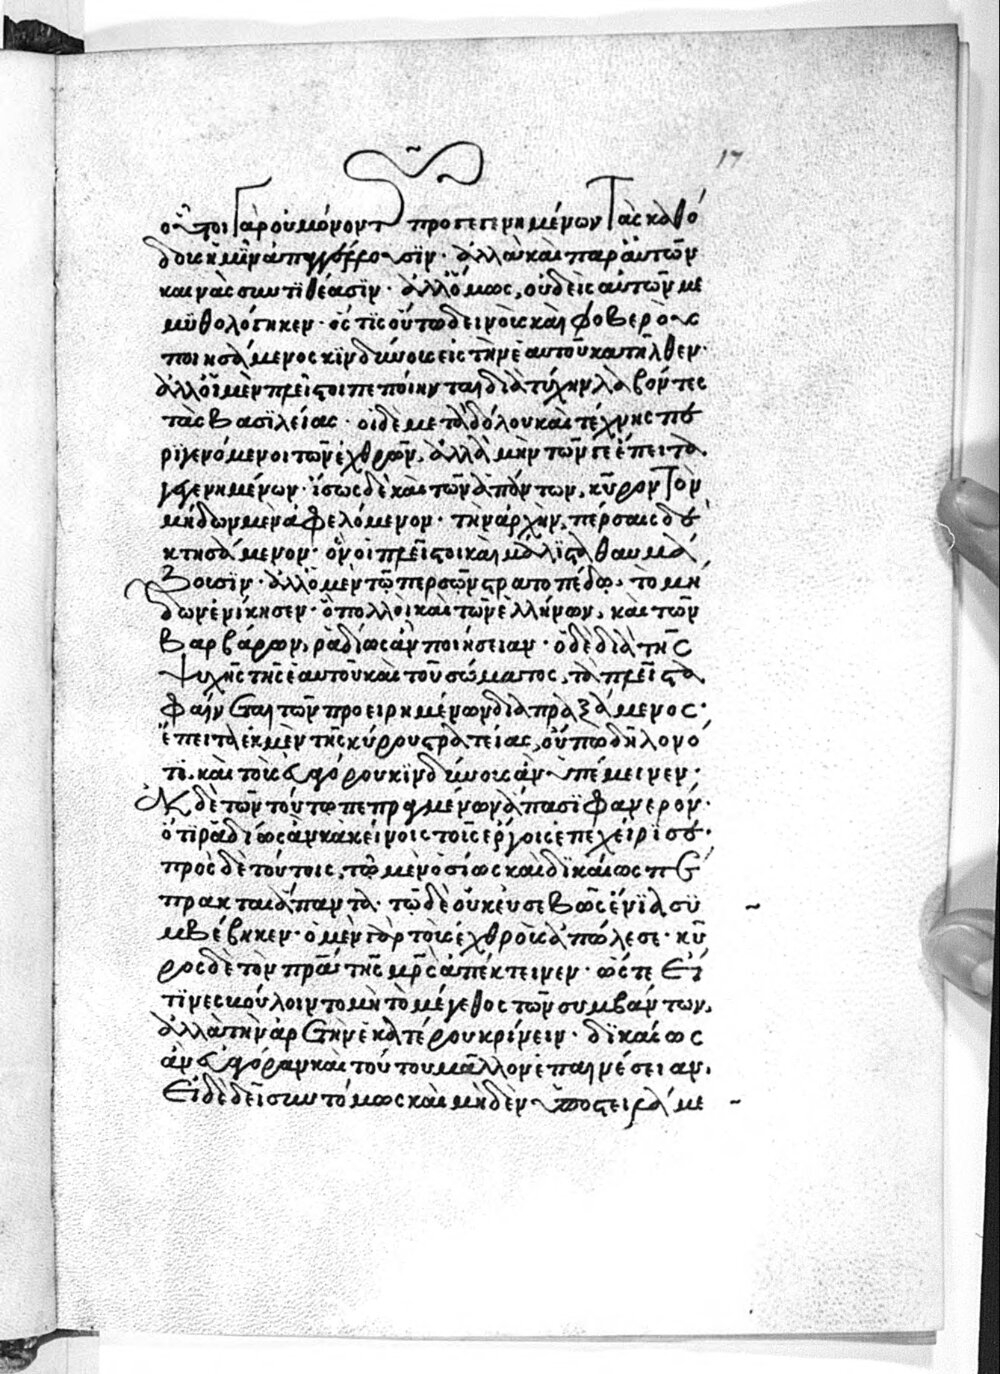 17
οὗτοι γὰρ οὐ μόνον τῶν προγεγενημένων τὰς καθό
δους ἡμῖν ἀπαγγέλλουσϊν· ἀλλὰ καὶ παρ' αὑτῶν
καινὰς συντϊθέασϊν· ἀλλ' ὅμως, οὐδεὶς αὐτῶν με
μϋθολόγηκεν· ὅς τϊς οὕτω δεινοὺς καὶ φοβεροὺς
ποιησάμενος κϊνδύνους εἰς τὴν ἑαυτοῦ κατῆλθεν·
ἀλλ' οἱ μὲν πλεῖστοι πεποίηνται διὰ τύχην λαβόντες
τὰς βασϊλείας· οἱ δὲ μετὰ δόλου καὶ τέχνης πε
ριγενόμενοι τῶν ἐχθρῶν, ἀλλὰ μὴν τῶν γε ἔπειτα
γεγενημένων· ἴσως δὲ καὶ τῶν ἁπάντων, κῦρον τὸν
μήδων μὲν ἀφελόμενον· τὴν ἀρχὴν, πέρσαις δὲ
κτησάμενον· ὃν οἱ πλεῖστοι καὶ μάλϊστα θαυμά
ζουσϊν· ἀλλ' ὁ μὲν τῷ περσῶν στρατοπέδῳ, τὸ μή
δων ἐνίκησεν· ὃ πολλοὶ καὶ τῶν ἑλλήνων, καὶ τῶν
βαρβάρων, ῥαδίως ἂν ποιήσειαν· ὁ δὲ διὰ τῆς
ψυχῆς τῆς ἑαυτοῦ καὶ τοῦ σώματος, τὰ πλεῖστα
φαίνεται τῶν προειρημένων διαπραξάμενος·
ἔπειτα ἐκ μὲν τῆς κύρου στρατείας, οὔπω δῆλον ὅ
τι καὶ τοὺς εὐαγόρου κϊνδύνους ἂν ὑπέμεινεν·
ἐκ δὲ τῶν τούτῳ πεπραγμένων ἅπασϊ φανερόν·
ὅτϊ ῥαδίως ἂν κἀκείνοις τοῖς ἔργοις ἐπεχείρϊσε·
πρὸς δὲ τούτοις, τῷ μὲν ὁσίως καὶ δϊκαίως πέ
πρακται ἅπαντα· τῷ δὲ οὐκ εὐσεβῶς ἔνϊα συ
μβέβηκεν· ὁ μὲν γὰρ τοὺς ἐχθροὺς ἀπώλεσε· κῦ
ρος δὲ τὸν πρα τῆς μρς ἀπέκτεινεν· ὥστε εἴ
τϊνες βούλοιντο μὴ τὸ μέγεθος τῶν συμβάντων,
ἀλλὰ τὴν ἀρετὴν ἑκατέρου κρίνειν· δϊκαίως
ἂν εὐαγόραν καὶ τούτου μᾶλλον ἐπαινέσειαν·
εἰ δὲ δεῖ συντόμως καὶ μηδὲν ὑποστειλάμε